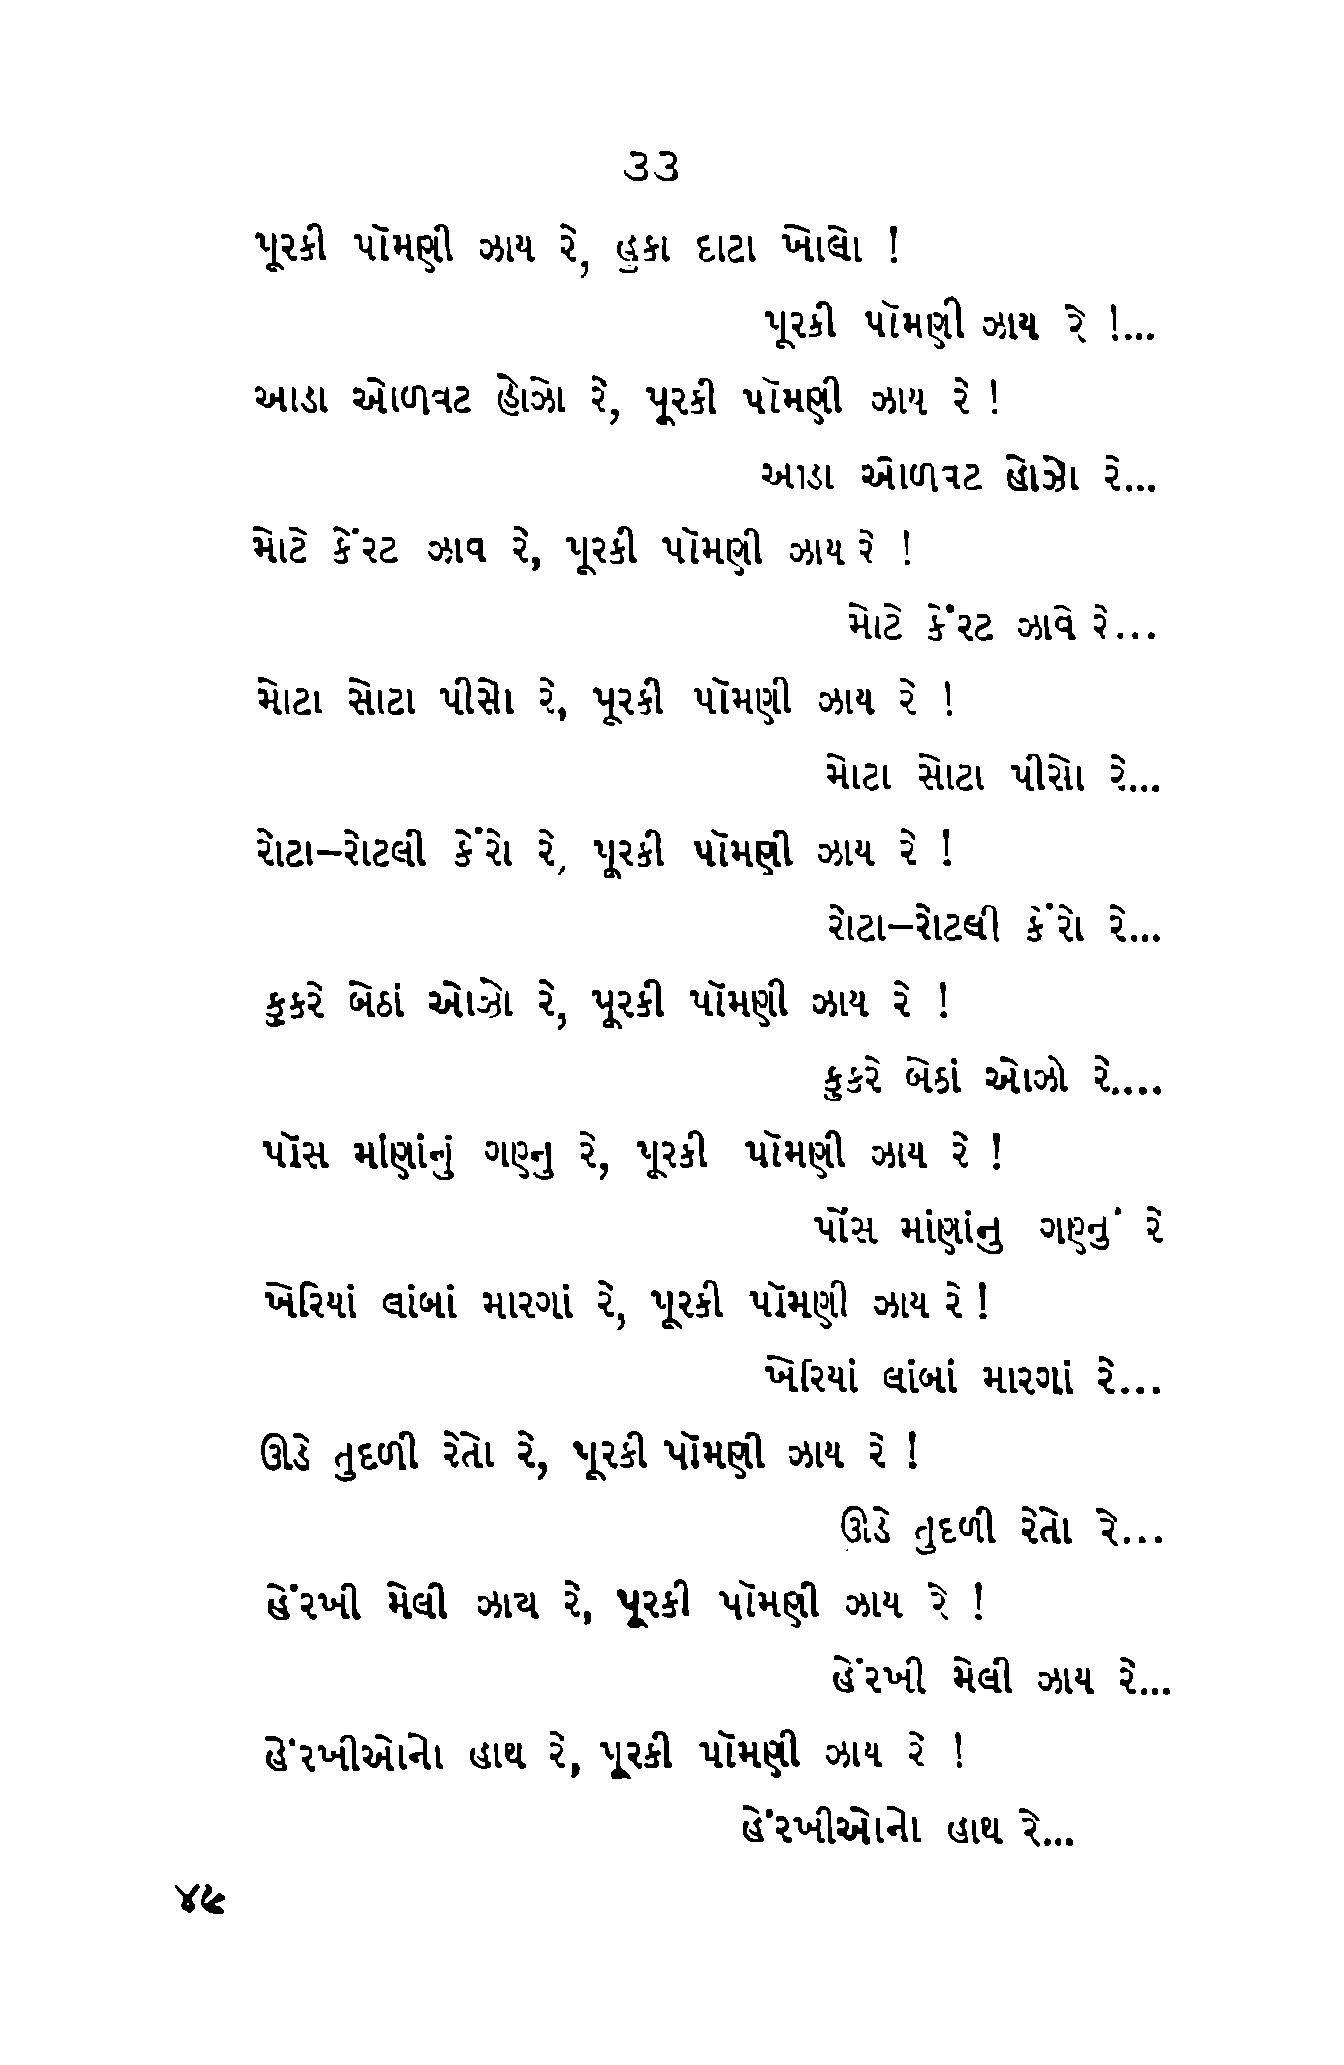 ૩૩
પૂરકી પૉમણી ઝાય રે, હુકા દાટા ખોલો !
પૂરકી પૉમણી ઝાય રે !...
આડા ઓળવટ હોઝો રે, પૂરકી પૉમણી ઝાય રે !
આડા ઓળવટ હોઝો રે...
મોટે કેંરટ ઝાવ રે, પૂરકી પૉમણી ઝાય રે !
મોટે કેંરટ ઝાવે રે...
મોટા સોટા પીસો રે, પૂરકી પૉમણી ઝાય રે !
મોટા સોટા પીસો રે...
રોટા–રોટલી કેંરો રે, પૂરકી પૉમણી ઝાય રે !
રોટા–રોટલી કેંરો રે...
કુકરે બેઠાં ઓઝો રે, પૂરકી પૉમણી ઝાય રે !
કુકરે બેઠાં ઓઝો રે....
પૉસ માંણાંનું ગણ્નુ રે, પૂરકી પૉમણી ઝાય રે !
પૉસ માંણાંનુ ગણ્નું રે
ખેરિયાં લાંબાં મારગાં રે, પૂરકી પૉમણી ઝાય રે !
ખેરિયાં લાંબાં મારગાં રે...
ઊડે તુદળી રેતો રે, પૂરકી પૉમણી ઝાય રે !
ઊડે તુદળી રેતો રે...
હેંરખી મેલી ઝાય રે, પૂરકી પૉમણી ઝાય રે !
હેંરખી મેલી ઝાય રે...
હેંરખીઓનો હાથ રે, પૂરકી પૉમણી ઝાય રે !
હેંરખીઓનો હાથ રે...
૪૯